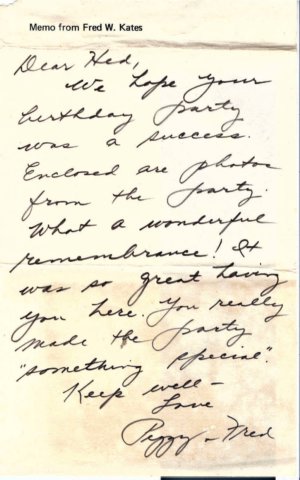 Memo from Fred W. Kates
Dear Hed,
We hope your
birthday party
was a success.
Enclosed are photos
from the party.
What a wonderful
remembrance! It
was so great having
you here. You really
made the party
"something special".
Keep well –
Love
Peggy – Fred